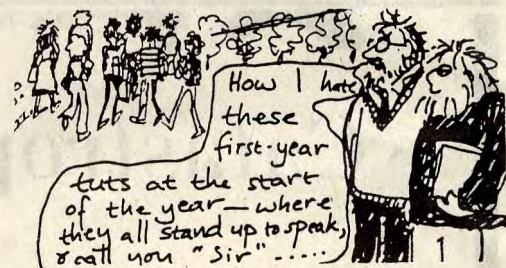 How I hate
these
first-year
tuts at the start
of the year — where
they all stand up to speak,
& call you "Sir".....
1